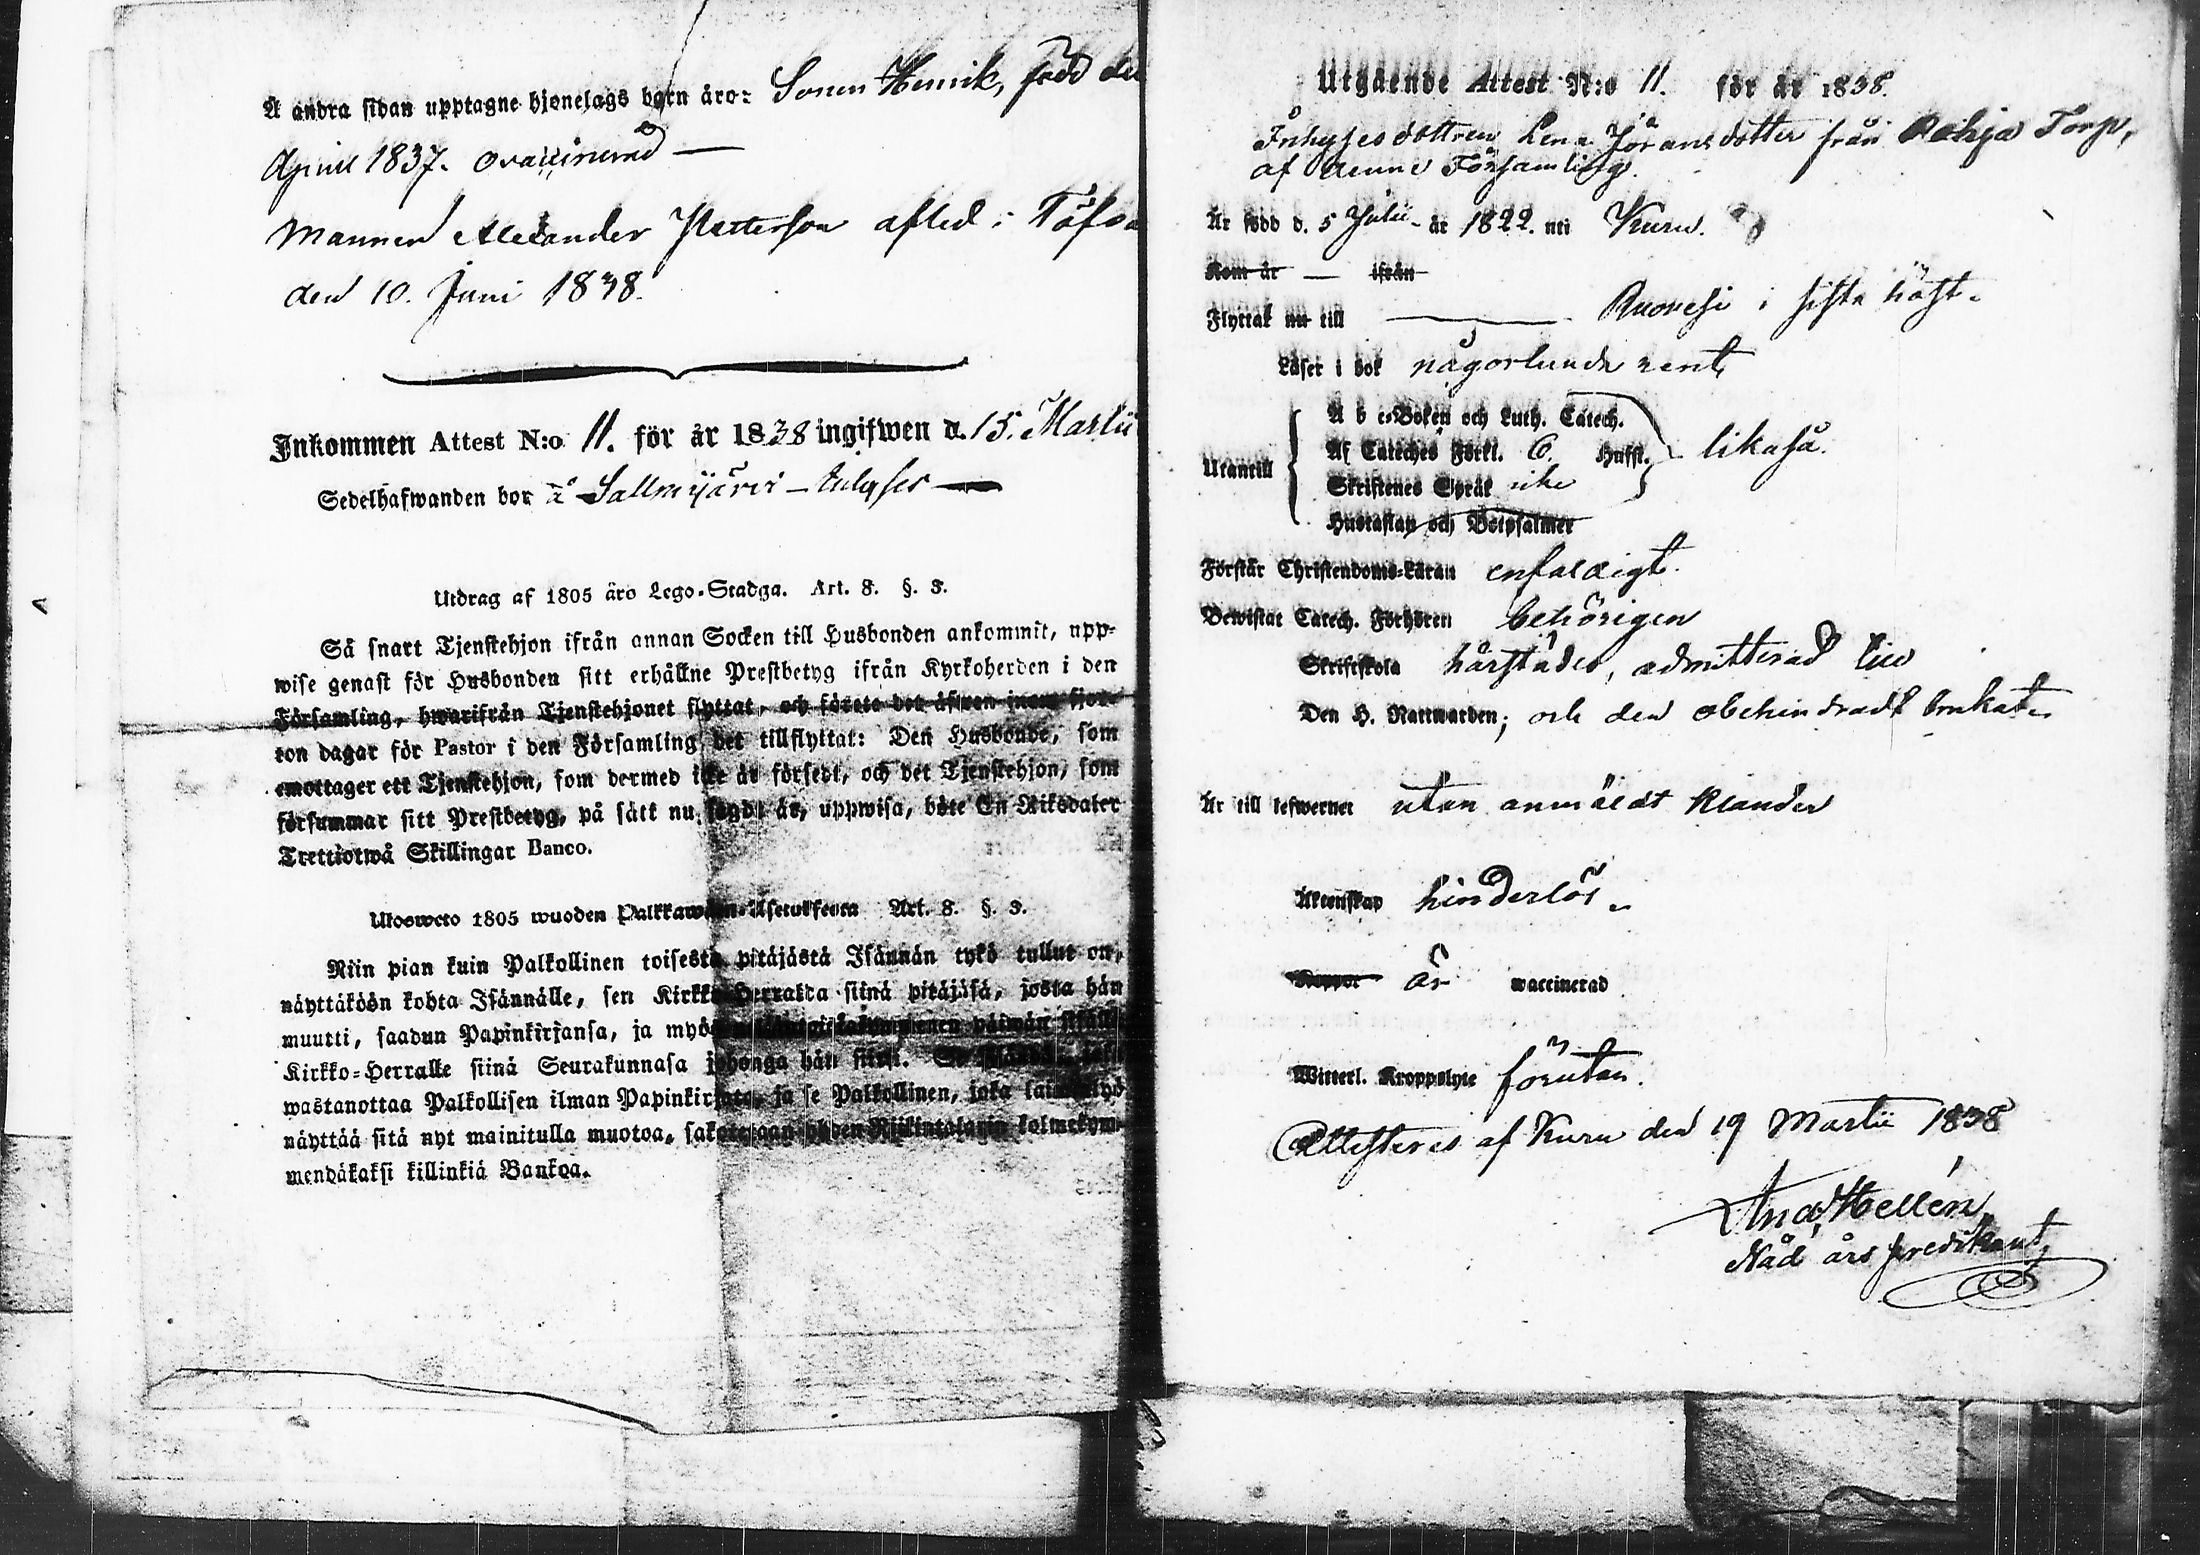 Å andra sidan upptagne hjonelags barn äro: Sonen Henrik, född den
April 1837. ovaccinerad —
Mannen Alexander Petterson afled i
den 10. Juni 1838.
Inkommen Attest N:o 11. för år 1838 ingifwen d. 15. Martii
Sedelhafwanden bor å Sallmijärvi – Inhyses —
Utdrag af 1805 års Lego-Stadga. Art. 8. §. 3.
Så snart Tjenstehjon ifrån annan Socken till Husbonden ankommit, upp-
wise genast för Husbonden sitt erhållne Prestbetyg ifrån Kyrkoherden i den
Församling, hwarifrån Tjenstehjonet flyttat, och förete det äfwen inom fjor-
ton dagar för Pastor i den Församling det tillflyttat: Den Husbonde, som
emottager ett Tjenstehjon, som dermed icke är försedt, och det Tjenstehjon, som
försummar sitt Prestbetyg, på sätt nu sagdt är, uppwisa, böte En Riksdaler
Trettiotwå Skillingar Banco.
Ulosweto 1805 wuoden Palkkawäen-Asetuksesta Art. 8. §. 3.
Niin pian kuin Palkollinen toisesta pitäjästä Isännän tykö tullut on,
näyttäköön kohta Isännälle, sen Kirkko-Herralda siinä pitäjäsä, josta hän
muutti, saadun Papinkirjansa, ja myös neljäntoistakymmenen päiwän sisällä
Kirkko-Herralle siinä Seurakunnasa johonga hän siirsi. Se Isäntä, joka
wastanottaa Palkollisen ilman Papinkirjata, ja se Palkollinen, joka laiminlyö
näyttää sitä nyt mainitulla muotoa, sakotetaan yhden Riikintalarin kolmekym-
mendäkaksi killinkiä Bankoa.
Utgående Attest N:o 11. för år 1838.
Inhysesdottren Lena Jöransdotter från Torp,
af denne Församling.
Är född d. 5 Julii – år 1822. uti Kuru.
Kom år — ifrån
Flyttat nu till — Ruovesi i sista höst.
Läser i bok någorlunda rent,
Utantill
A b c-Boken och Luth. Catech.
Af Cateches Förkl. 6. Hufst. likaså.
Skriftenes Språk icke
Hustaflan och Botpsalmer
Förstår Christendoms-Läran enfaldigt.
Bewistat Catech. Förhören behörigen
Skriftskola härstädes, admitterad till
Den H. Nattwarden; och den obehindradt brukat.
Är till lefwernet utan anmäldt klander
Äktenskap hinderlös.
Koppor är waccinerad
Witterl. Kroppslyte förutan.
Attesteres af Kuru den 19 Martii 1838
And. Hellén,
Nåd års predikant,